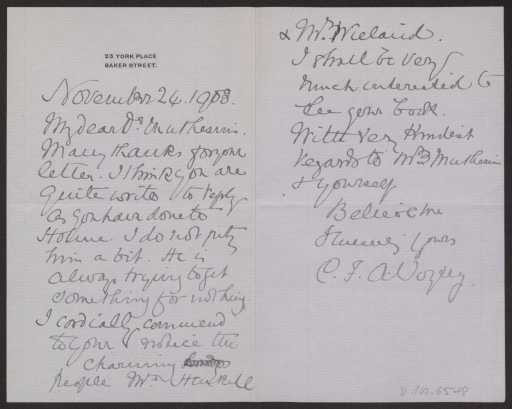 23 YORK PLACE
BAKER STREET.
November 24. 1908.
My dear Dr. Muthesius.
Many thanks for your
letter. I think you are
quite write to reply
as you have done to
Holme. I do not pity
him a bit. He is
always trying to get
something for nothing
I cordially commend
to your notice the
charming
people Mrs. Haskell
& Mr. Wieland.
I shall be very
much interested to
see your book.
With very kindest
regards to Mrs Muthesius
& yourself
Believe me
Sincerely yours
C. F. A. Voysey.